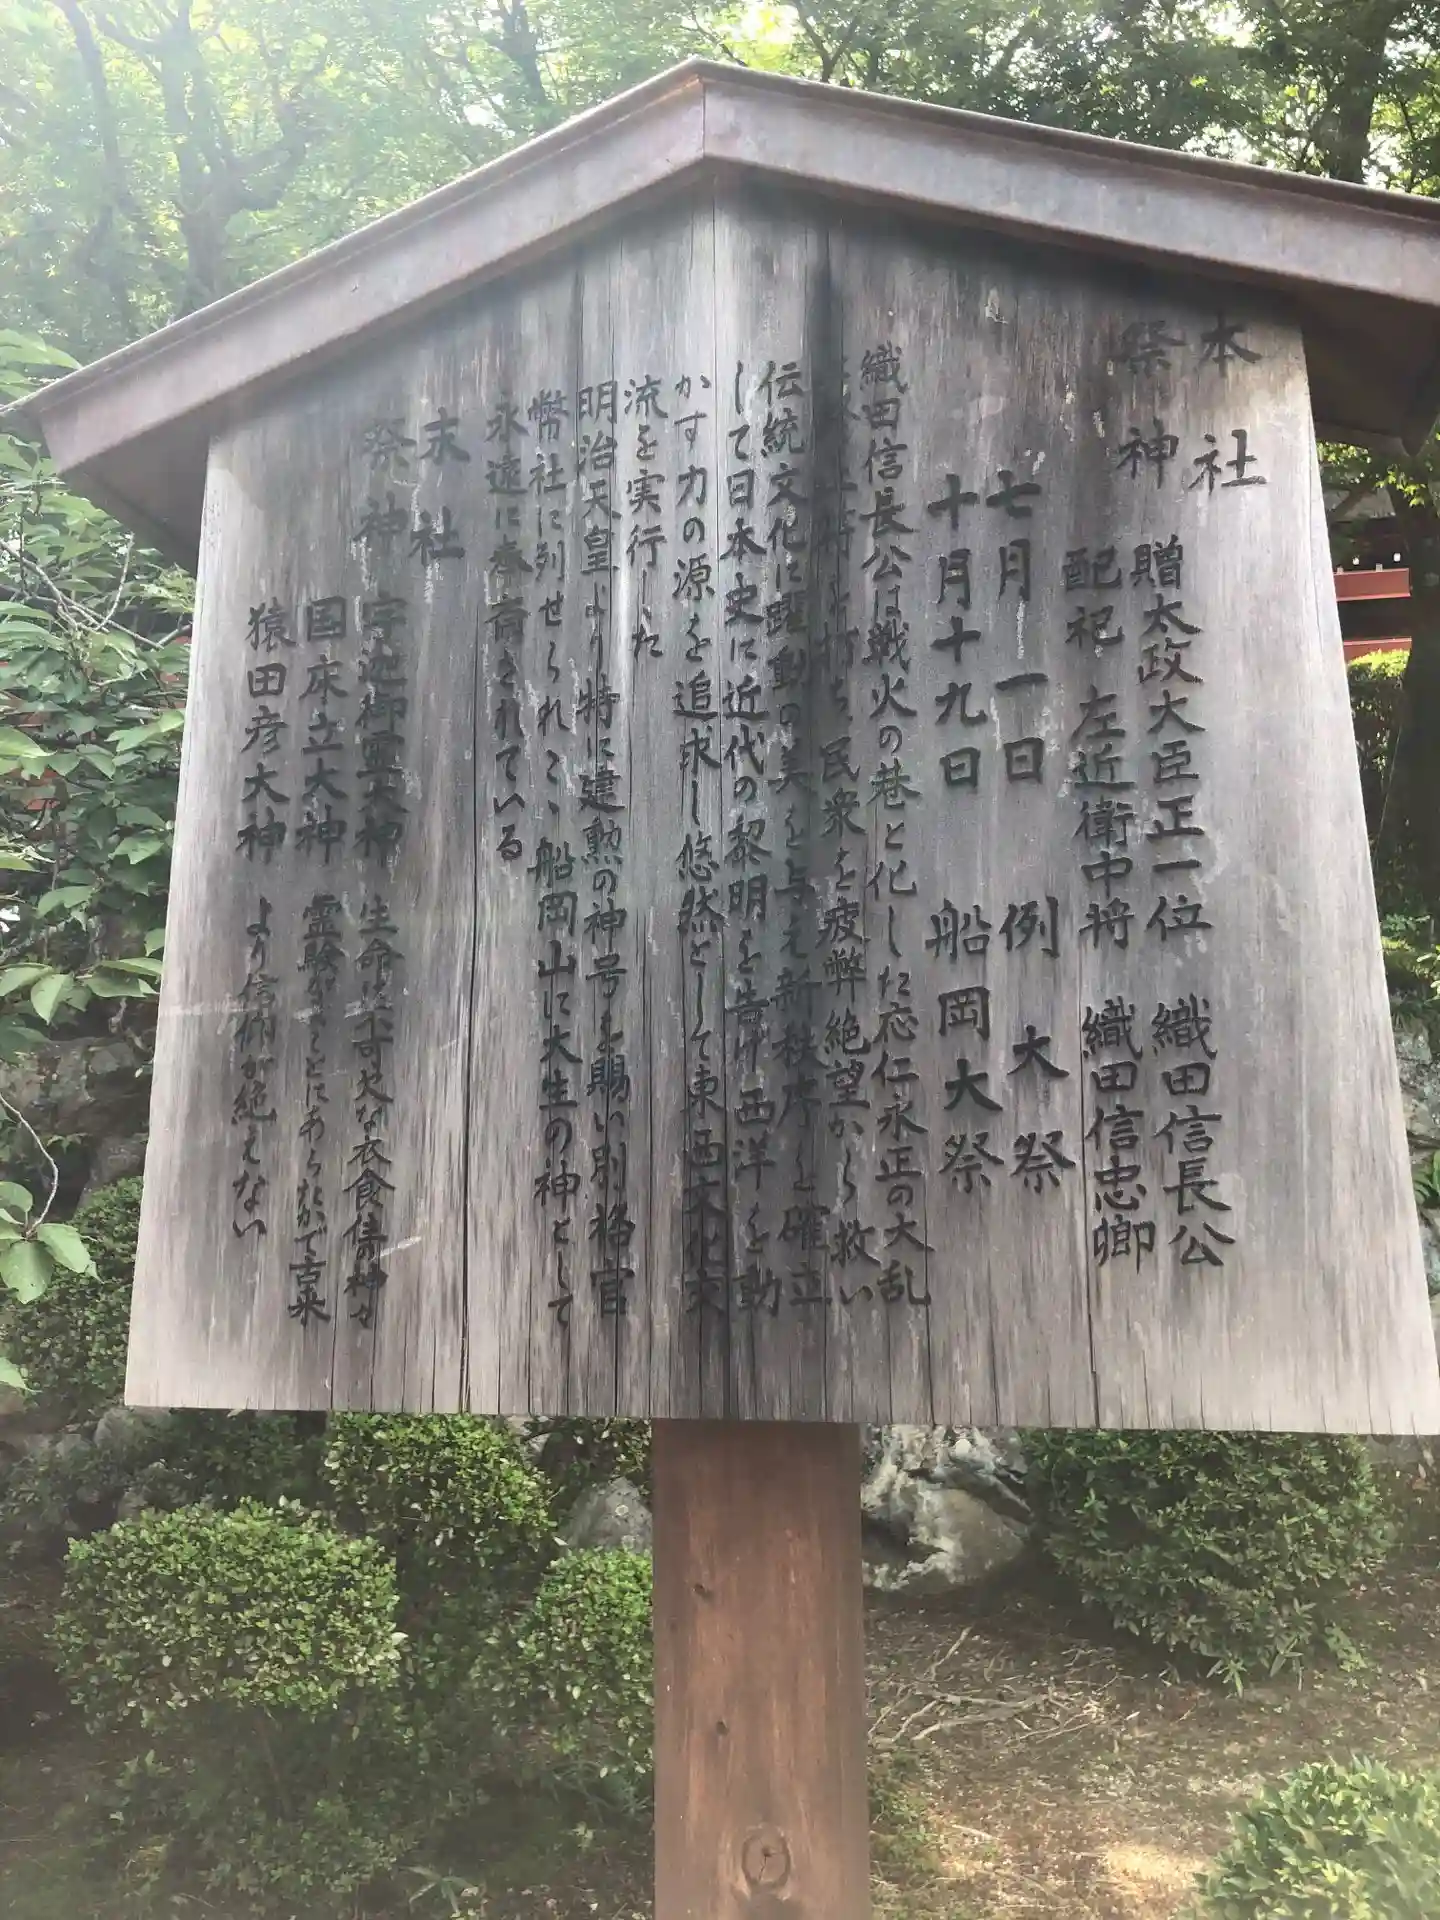 本社
祭神 贈太政大臣正一位 織田信長公
配祀 左近衛中将 織田信忠卿
七月一日 例大祭
十月十九日 船岡大祭
織田信長公は戦火の巷と化した応仁永正の大乱
を打ち、民衆を疲弊絶望から救い
伝統文化に躍動の美を与え新秩序を確立
して日本史に近代の黎明を告げ西洋を動
かす力の源を追求し悠然として東西文化交
流を実行した
明治天皇より特に建勲の神号を賜い別格官
幣社に列せられこゝ船岡山に大生の神として
永遠に奉斎されている
末社
祭神 宇迦御霊大神 生命に不可欠な衣食住の神々
国床立大神 霊験がまことにあらたかで古来
猿田彦大神 より信仰が絶えない